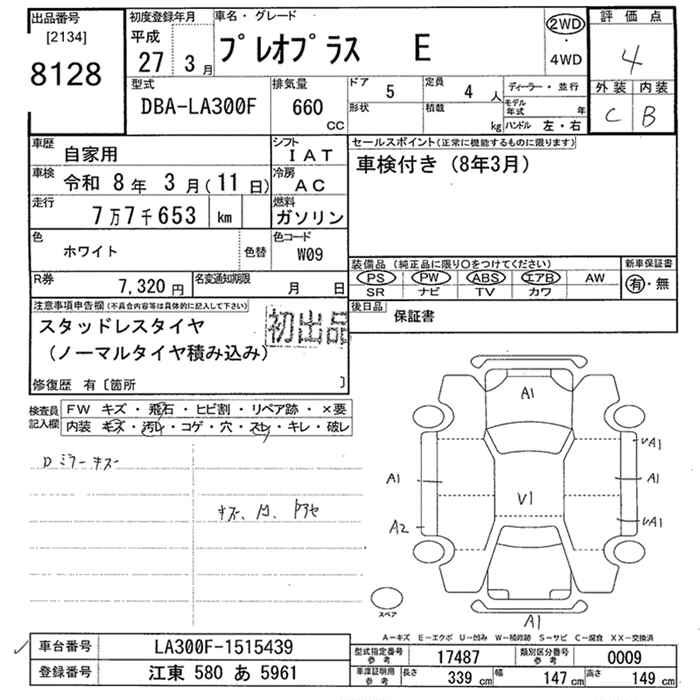 出品番号
[2134]
8128
初度登録年月
平成
27 3月
車名・グレード
プレオプラス E
2WD
・
4WD
評価点
4
外装 内装
C B
型式
DBA-LA300F
排気量
660
CC
ドア 5
形状
定員 4 人
積載 kg
ディーラー・並行
モデル年式 年
ハンドル 左・右
車歴
自家用
シフト
IAT
車検 令和 8年 3月(11日)
冷房
AC
走行
7万7千653 km
燃料
ガソリン
色
ホワイト
色替
色コード
W09
R券
7,320円
名変通知期限
月 日
セールスポイント(正常に機能するものに限ります)
車検付き(8年3月)
装備品(純正品に限り○をつけてください)
PS PW ABS エアB AW
SR ナビ TV カワ
新車保証書
有・無
後日品
保証書
注意事項申告欄(不具合内容等は具体的に記入して下さい)
スタッドレスタイヤ
(ノーマルタイヤ積み込み)
初出品
修復歴 有〔箇所 〕
検査員記入欄
FW キズ・飛石・ヒビ割・リペア跡・×要
内装 キズ・汚レ・コゲ・穴・スレ・キレ・破レ
Dミラーキズー
A1
A1
A2
V1
A1
A1
スペア
A-キズ E-エクボ U-凹み W-補修跡 S-サビ C-腐食 XX-交換済
車台番号 LA300F-1515439
登録番号 江東 580 あ 5961
型式指定番号 参考 17487
類別区分番号 参考 0009
車庫証明用 参考 長さ 339 cm 幅 147 cm 高さ 149 cm